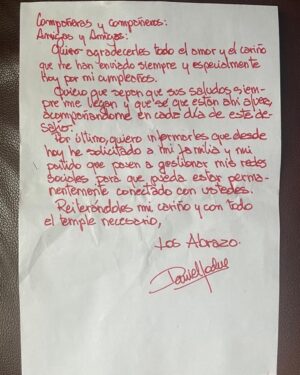 Compañeras y compañeros:
Amigos y Amigas:
Quiero agradecerles todo el amor y el cariño
que me han enviado siempre y especialmente
Hoy por mi cumpleaños.
Quiero que sepan que sus saludos siem-
pre me llegan y que sé que están ahí afuera
acompañándome en cada día de este de-
safío.
Por último, quiero informarles que desde
hoy he solicitado a mi familia y mi
partido que pasen a gestionar mis redes
sociales para que pueda estar perma-
nentemente conectado con ustedes.
Reiterándoles mi cariño y con todo
el temple necesario,
Los Abrazo.